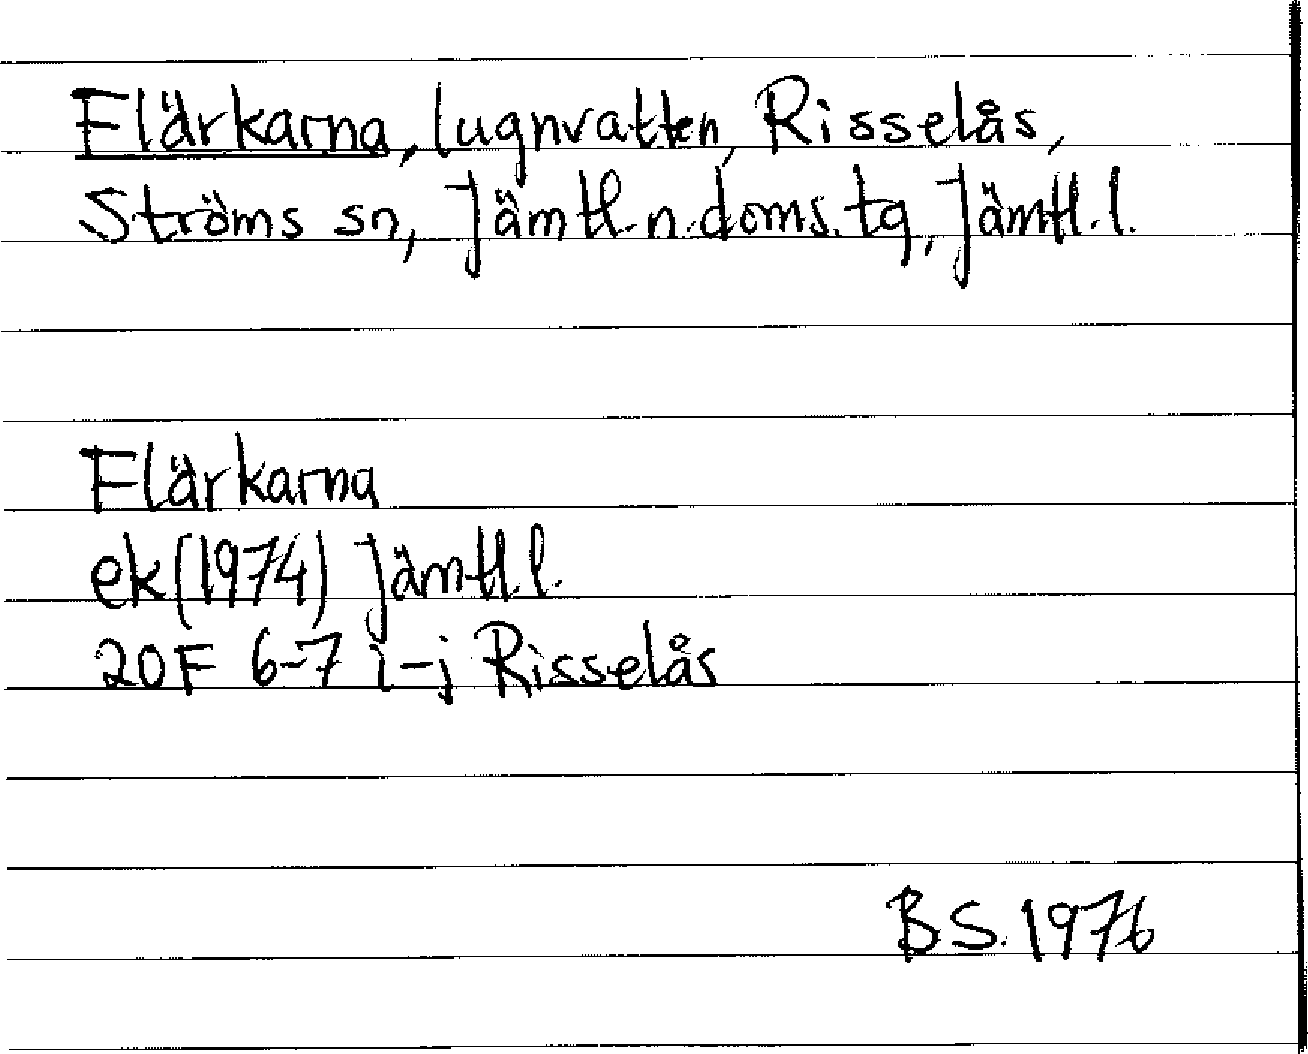 Flärkarna, lugnvatten, Risselås,
Ströms sn, Jämtl.n.doms.tg, Jämtl.l.
Flärkarna
ek (1974) Jämtl.l.
20F 6-7 i-j Risselås
BS. 1976